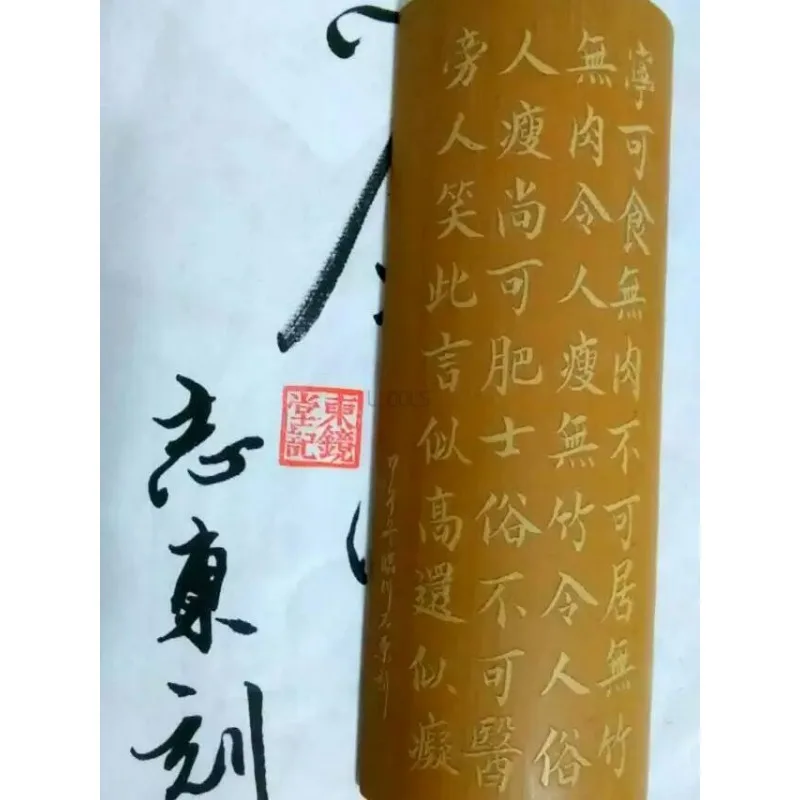 寧可食無肉不可居無竹
無肉令人瘦無竹令人俗
人瘦尚可肥士俗不可醫
旁人笑此言似高還似癡
東鏡
堂記
志東刻